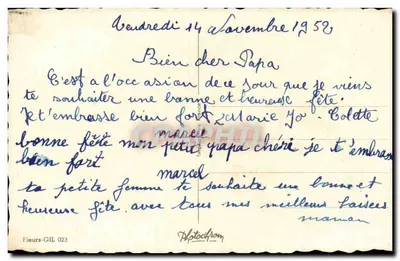 Vendredi 14 Novembre 1952
Bien cher Papa
C'est a l'occasion de ce jour que je viens
te souhaiter une bonne et heureuse fête.
Je t'embrasse bien fort Marie Jo. Colette
marcel
bonne fête mon petit papa chéri je t'embrasse
bien fort
marcel
ta petite femme te souhaite une bonne et
heureuse fête avec tous mes meilleurs baisers
maman
Fleurs-GIL 023
Photochrom